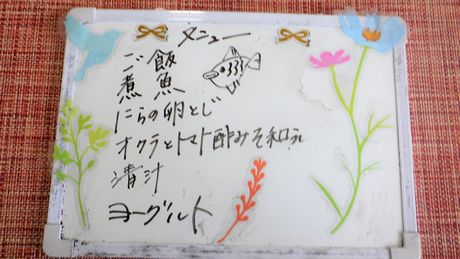 メニュー
ご飯
煮魚
にらの卵とじ
オクラとトマト酢みそ和え
清汁
ヨーグルト